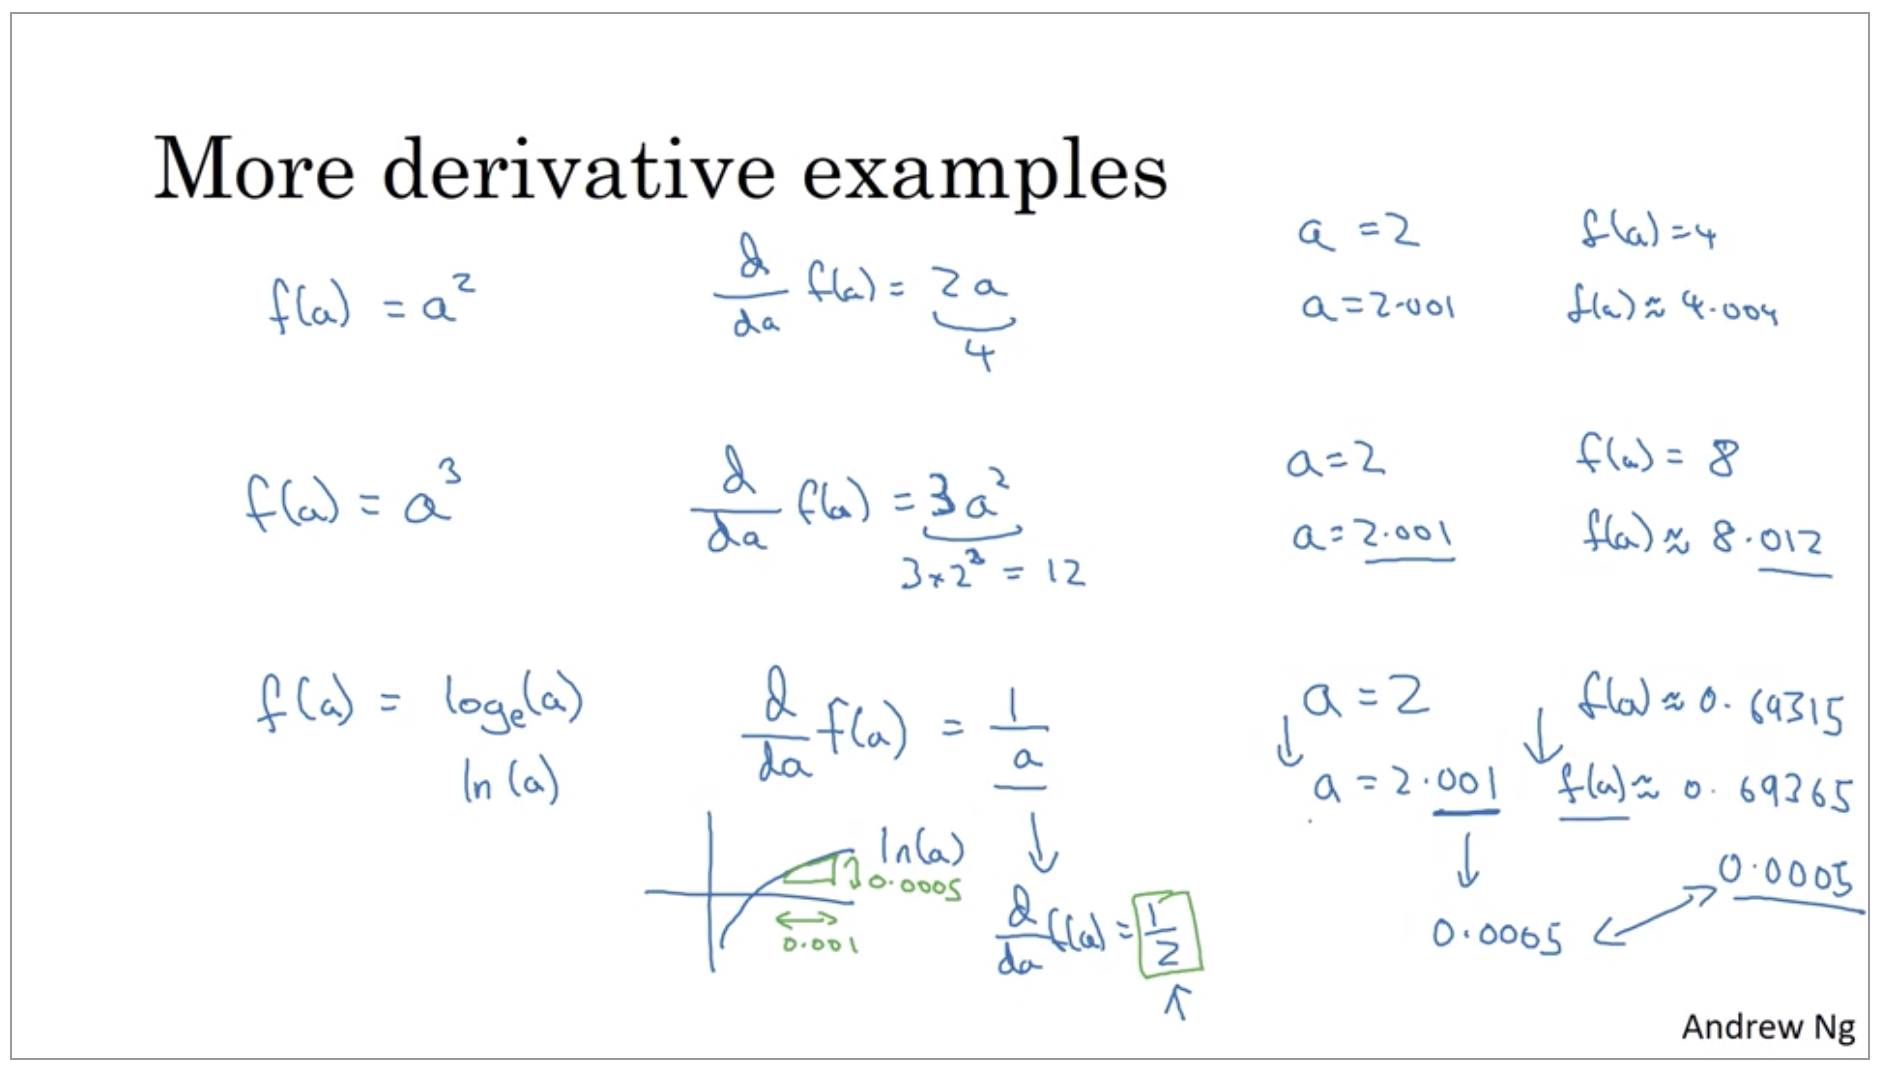 More derivative examples
f(a) = a²
d/da f(a) = 2a
4
a = 2 f(a) = 4
a = 2.001 f(a) ≈ 4.004
f(a) = a³
d/da f(a) = 3a²
3×2² = 12
a = 2 f(a) = 8
a = 2.001 f(a) ≈ 8.012
f(a) = logₑ(a)
ln(a)
d/da f(a) = 1/a
↓
d/da f(a) = 1/2
↑
ln(a)
0.0005
0.001
a = 2 f(a) ≈ 0.69315
↓ ↓
a = 2.001 f(a) ≈ 0.69365
↓
0.0005
0.0005
Andrew Ng